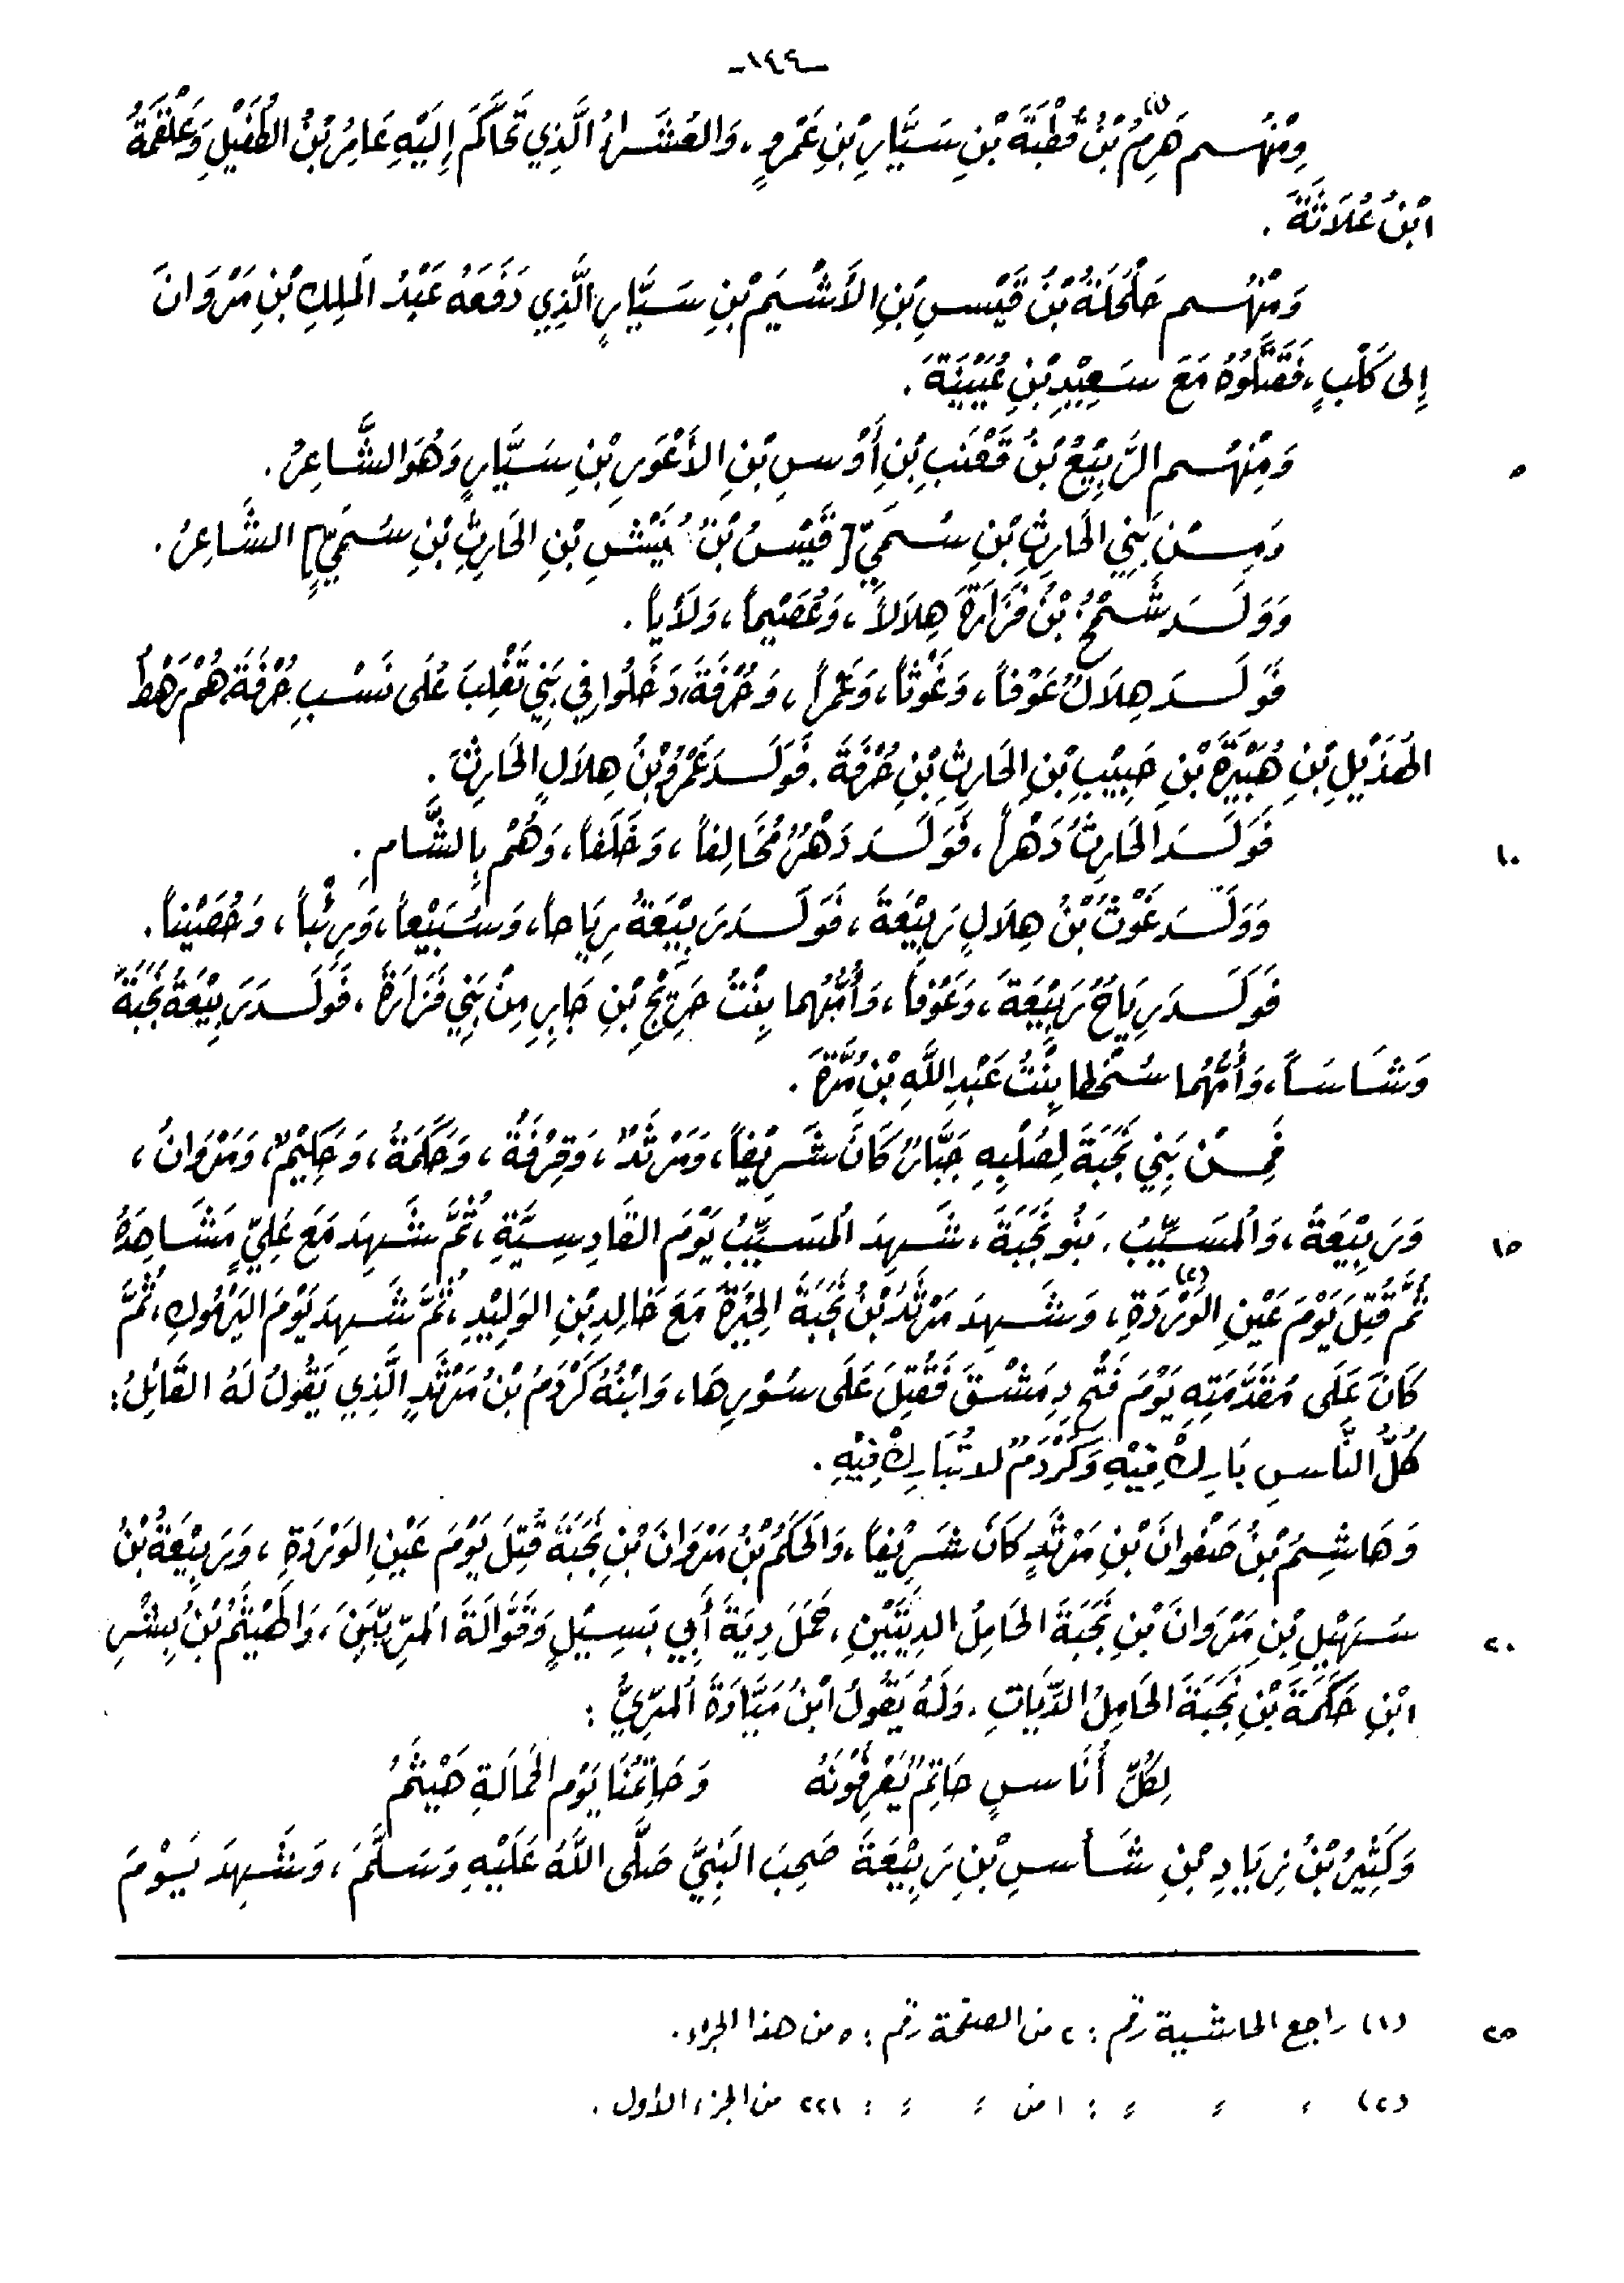 -١٤٤-
وَمِنْهُم هَرِمُ(١) بْنُ قُطْبَةَ بْنِ سَيَّارِ بْنِ عَمْرٍو، وَالعُشَرَاءُ الَّذِي تَحَاكَمَ إِلَيْهِ عَامِرُ بْنُ الطُّفَيْلِ وَعَلْقَمَةُ
ابْنُ عُلَاثَةَ .
وَمِنْهُم حَلْحَلَةُ بْنُ قَيْسِ بْنِ الأَشْيَمِ بْنِ سَيَّارٍ الَّذِي دَفَعَهُ عَبْدُ المَلِكِ بْنِ مَرْوَانَ
إِلى كَلْبٍ، فَقَتَلُوهُ مَعَ سَعِيْدِ بْنِ عُيَيْنَةَ .
وَمِنْهُم الرَّبِيْعُ بْنُ قَعْنَبِ بْنِ أَوْسِ بْنِ الأَعْوَرِ بْنِ سَيَّارٍ وَهُوَ الشَّاعِرُ . ٥
وَمِنْ بَنِي الحَارِثِ بْنِ سُمَيٍّ [قَيْسُ بْنُ بُنَيْشِ بْنِ الحَارِثِ بْنِ سُمَيٍّ] الشَّاعِرُ .
وَوَلَدَ شَمْخُ بْنُ فَزَارَةَ هِلَالاً، وَعُصَيْماً، وَلَأْياً .
فَوَلَدَ هِلَالٌ عَوْفاً، وَغَوْثاً، وَعَمْراً، وَحُرْفَةَ، دَخَلُوا فِي بَنِي تَغْلِبَ عَلَى نَسَبِ حُرْفَةَ، هُمْ رَهْطُ
الهُذَيْلِ بْنِ هُبَيْرَةَ بْنِ حَبِيْبِ بْنِ الحَارِثِ بْنِ حُرْفَةَ . فَوَلَدَ عَمْرُو بْنُ هِلَالٍ الحَارِثَ .
فَوَلَدَ الحَارِثُ دَهْراً، فَوَلَدَ دَهْرٌ مُخَالِفاً، وَخَلَفاً، وَهُمْ بِالشَّامِ . ١٠
وَوَلَدَ غَوْثُ بْنُ هِلَالٍ رَبِيْعَةَ، فَوَلَدَ رَبِيْعَةُ رِيَاحاً، وَسُبَيْعاً، وَرِئْباً، وَحُصَيْناً .
فَوَلَدَ رِيَاحُ رَبِيْعَةَ، وَعَوْفاً، وَأُمُّهُمَا بِنْتُ خَدِيْجِ بْنِ جَابِرٍ مِنْ بَنِي فَزَارَةَ، فَوَلَدَ رَبِيْعَةُ نَجَبَةَ
وَشَاسَاً، وَأُمُّهُمَا سُخْطَا بِنْتُ عَبْدِ اللَّهِ بْنِ مُرَّةَ .
فَمِنْ بَنِي نَجَبَةَ لِصُلْبِهِ جَبَّارٌ كَانَ شَرِيْفاً، وَمَرْثَدٌ، وَقِرْفَةُ، وَحَكَمَةُ، وَحَكِيْمٌ، وَمَرْوَانُ،
وَرَبِيْعَةُ، وَالمُسَيِّبُ . بَنُو نَجَبَةَ، شَهِدَ المُسَيِّبُ يَوْمَ القَادِسِيَّةِ، ثُمَّ شَهِدَ مَعَ عَلِيٍّ مَشَاهِدَهُ ١٥
ثُمَّ قُتِلَ يَوْمَ عَيْنِ الوَرْدَةِ(٢)، وَشَهِدَ مَرْثَدُ بْنُ نَجَبَةَ الحِيْرَةَ مَعَ خَالِدِ بْنِ الوَلِيْدِ، ثُمَّ شَهِدَ يَوْمَ اليَرْمُوكِ، ثُمَّ
كَانَ عَلَى مُقَدِّمَتِهِ يَوْمَ فَتْحِ دِمَشْقَ فَقُتِلَ عَلَى سُوْرِهَا، وَابْنُهُ كَرْدَمُ بْنُ مَرْثَدٍ الَّذِي يَقُولُ لَهُ القَائِلُ:
كُلُّ النَّاسِ بَارِكْ فِيْهِ وَكَرْدَمٌ لا تُبَارِكْ فِيْهِ .
وَهَاشِمُ بْنُ صَفْوَانَ بْنِ مَرْثَدٍ كَانَ شَرِيْفاً، وَالحَكَمُ بْنُ مَرْوَانَ بْنِ نَجَبَةَ قُتِلَ يَوْمَ عَيْنِ الوَرْدَةِ، وَرَبِيْعَةُ بْنُ
سَهْيلِ بْنِ مَرْوَانَ بْنِ نَجَبَةَ الحَامِلُ الدِيَّتَيْنِ، حَمَلَ دِيَةَ أَبِي بَسِيْلٍ وَقَوَّالَةَ المُرِّيِّيْنَ، وَالهَيْثَمُ بْنُ بِشْرِ ٢٠
ابْنِ حَكَمَةَ بْنِ نَجَبَةَ الحَامِلُ الدِّيَاتِ . وَلَهُ يَقُولُ ابْنُ مَيَّادَةَ المُرِّيُّ :
لِكُلِّ أُنَاسٍ حَاتِمٌ يَعْرِفُونَهُ وَحَاتِمُنَا يَوْمَ الحَمَالَةِ هَيْثَمُ
وَكَثِيْرُ بْنُ زِيَادِ بْنِ شَأْسِ بْنِ رَبِيْعَةَ صَحِبَ النَّبِيَّ صَلَّى اللَّهُ عَلَيْهِ وَسَلَّمَ، وَشَهِدَ يَوْمَ
(١) راجع الحاشية رقم : ٢ من الصفحة رقم : ٥ من هذا الجزء . ٢٥
(٢) ، ، ، : ١ من ، ، : ٢٢١ من الجزء الأول .